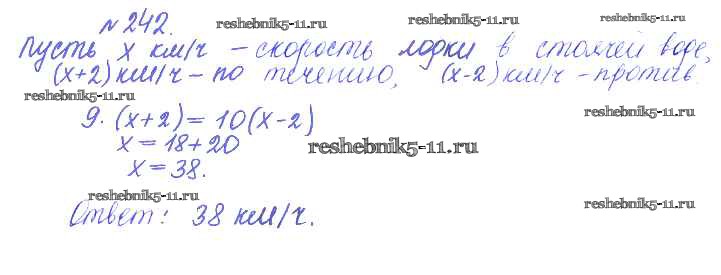 № 242.
reshebnik5-11.ru
reshebnik5-11.ru
reshebnik5-11.ru
Пусть x км/ч - скорость лодки в стоячей воде,
(x+2) км/ч - по течению, (x-2) км/ч - против.
reshebnik5-11.ru
reshebnik5-11.ru
9·(x+2) = 10(x-2)
x = 18+20
reshebnik5-11.ru
x = 38.
reshebnik5-11.ru
reshebnik5-11.ru
Ответ: 38 км/ч.